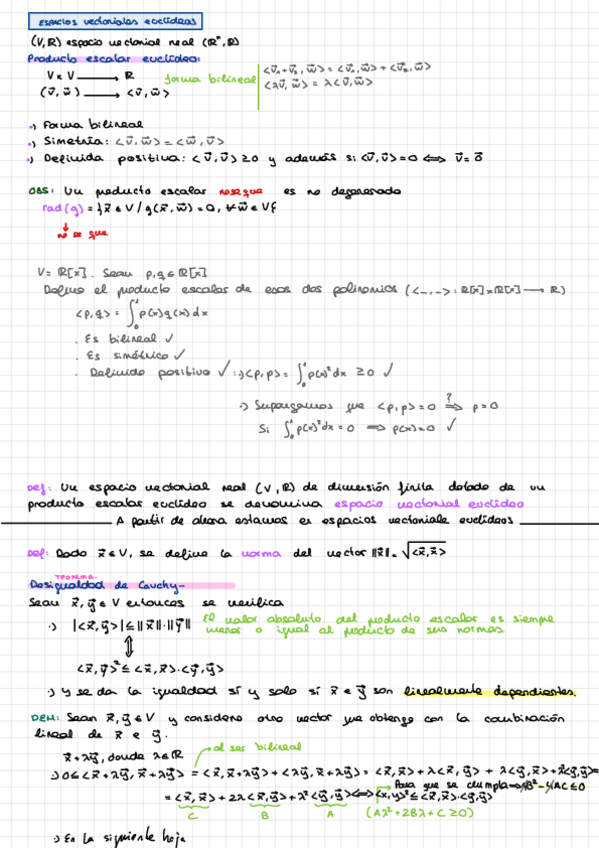 ESPACIOS vectoriales euclídeos
(V, ℝ) espacio vectorial real (ℝⁿ, ℝ)
Producto escalar euclídeo:
V × V ⟶ ℝ
(v⃗, w⃗) ⟶ <v⃗, w⃗>
forma bilineal
<v⃗₁+v⃗₂, w⃗> = <v⃗₁, w⃗> + <v⃗₂, w⃗>
<λv⃗, w⃗> = λ<v⃗, w⃗>
·) Forma bilineal
·) Simetría: <v⃗, w⃗> = <w⃗, v⃗>
·) Definida positiva: <v⃗, v⃗> ≥ 0 y además si <v⃗, v⃗> = 0 ⟺ v⃗ = 0⃗
OBS: Un producto escalar es no degenerado
rad(g) = {x⃗ ∈ V / g(x⃗, w⃗) = 0, ∀ w⃗ ∈ V}
↓
no se que
V = ℝ[x]. Sean p, q ∈ ℝ[x]
Defino el producto escalar de esos dos polinomios (<_,_> : ℝ[x]×ℝ[x] ⟶ ℝ)
<p,q> = ∫₀¹ p(x)q(x)dx
. Es bilineal ✓
. Es simétrico ✓
. Definido positivo ✓ ·) <p,p> = ∫₀¹ p(x)²dx ≥ 0 ✓
·) Supongamos que <p,p> = 0 ⟹? p = 0
Si ∫₀¹ p(x)²dx = 0 ⟹ p(x) = 0 ✓
Def: Un espacio vectorial real (V, ℝ) de dimensión finita dotado de un
producto escalar euclídeo se denomina espacio vectorial euclídeo
A partir de ahora estamos en espacios vectoriale euclídeos
Def: Dado x⃗ ∈ V, se define la norma del vector ‖x⃗‖ = √<x⃗, x⃗>
TEOREMA.
Desigualdad de Cauchy-
Sean x⃗, y⃗ ∈ V entonces se verifica
·) |<x⃗, y⃗>| ≤ ‖x⃗‖·‖y⃗‖
El valor absoluto del producto escalar es siempre
menor o igual al producto de sus normas
⇕
<x⃗, y⃗>² ≤ <x⃗, x⃗>·<y⃗, y⃗>
·) Y se da la igualdad sí y solo sí x⃗ e y⃗ son linealmente dependientes.
DEM: Sean x⃗, y⃗ ∈ V y considero otro vector que obtengo con la combinación
lineal de x⃗ e y⃗.
x⃗ + λy⃗, donde λ ∈ ℝ
al ser bilineal
·) 0 ≤ <x⃗ + λy⃗, x⃗ + λy⃗> = <x⃗, x⃗+λy⃗> + <λy⃗, x⃗+λy⃗> = <x⃗, x⃗> + λ<x⃗, y⃗> + λ<y⃗, x⃗> + λ²<y⃗, y⃗> =
Para que se cumpla ⟹ 4B² − 4AC ≤ 0
= <x⃗, x⃗> + 2λ<x⃗, y⃗> + λ²<y⃗, y⃗> ⟺ <x, y>² ≤ <x⃗, x⃗>·<y⃗, y⃗>
C B A (Aλ² + 2Bλ + C ≥ 0)
·) En la siguiente hoja